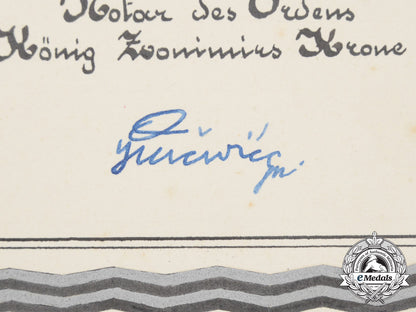 Notar des Ordens
König Zvonimirs Krone
eMedals